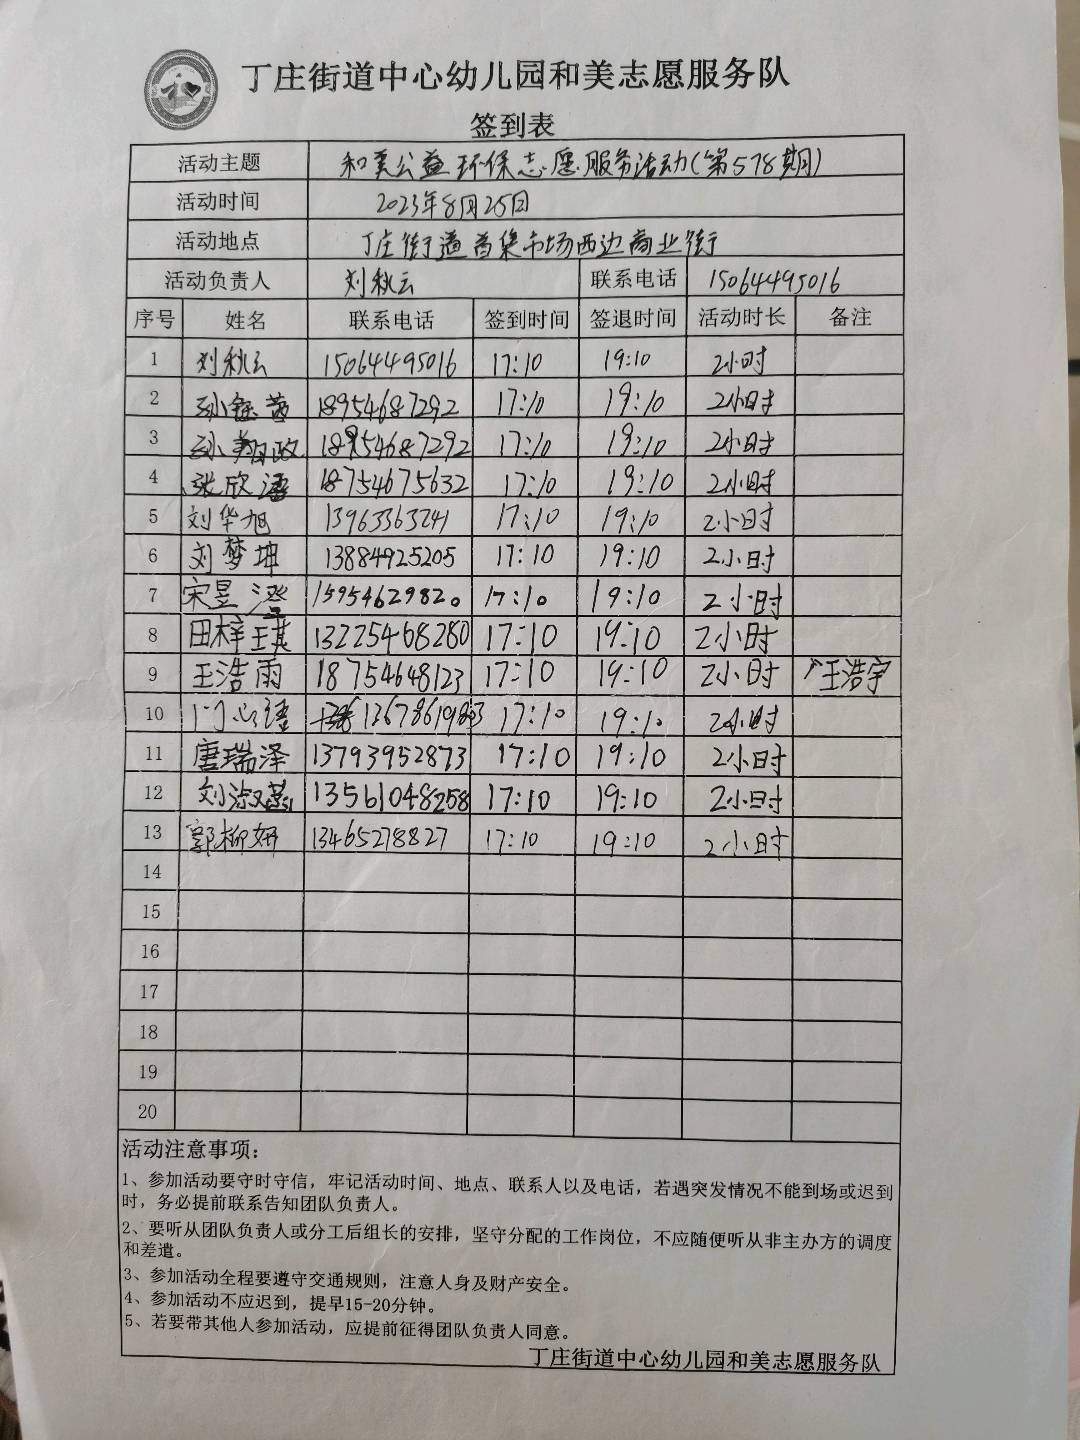 丁庄街道中心幼儿园和美志愿服务队
签到表
活动主题 和美公益环保志愿服务活动(第578期)
活动时间 2023年8月25日
活动地点 丁庄街道首集市场西边商业街
活动负责人 刘秋云 联系电话 15064495016
序号 姓名 联系电话 签到时间 签退时间 活动时长 备注
1 刘秋云 15064495016 17:10 19:10 2小时
2 孙钰茜 18954687292 17:10 19:10 2小时
3 孙 政 18954687292 17:10 19:10 2小时
4 张欣语 18754675632 17:10 19:10 2小时
5 刘华旭 13963363241 17:10 19:10 2小时
6 刘梦坤 13884925205 17:10 19:10 2小时
7 宋昱澄 15954629820 17:10 19:10 2小时
8 田梓琪 13225468280 17:10 19:10 2小时
9 王浩雨 18754648123 17:10 19:10 2小时 王浩宇
10 门心语 17:10 19:10 2小时
11 唐瑞泽 13793952873 17:10 19:10 2小时
12 刘淑燕 13561048258 17:10 19:10 2小时
13 郭柳妍 13465278827 17:10 19:10 2小时
14
15
16
17
18
19
20
活动注意事项:
1、参加活动要守时守信，牢记活动时间、地点、联系人以及电话，若遇突发情况不能到场或迟到
时，务必提前联系告知团队负责人。
2、要听从团队负责人或分工后组长的安排，坚守分配的工作岗位，不应随便听从非主办方的调度
和差遣。
3、参加活动全程要遵守交通规则，注意人身及财产安全。
4、参加活动不应迟到，提早15-20分钟。
5、若要带其他人参加活动，应提前征得团队负责人同意。
丁庄街道中心幼儿园和美志愿服务队